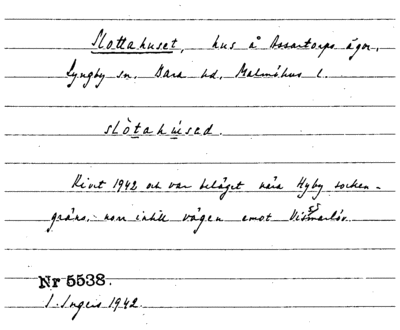 Slottahuset, hus å Assartorps ägor,
Lyngby sn. Bara hd, Malmöhus l.
slòtahúsed.
Rivet 1942 och var beläget nära Hyby socken-
gräns, norr intill vägen emot Vismarlöv.
Nr 5538.
I. Ingers 1942.